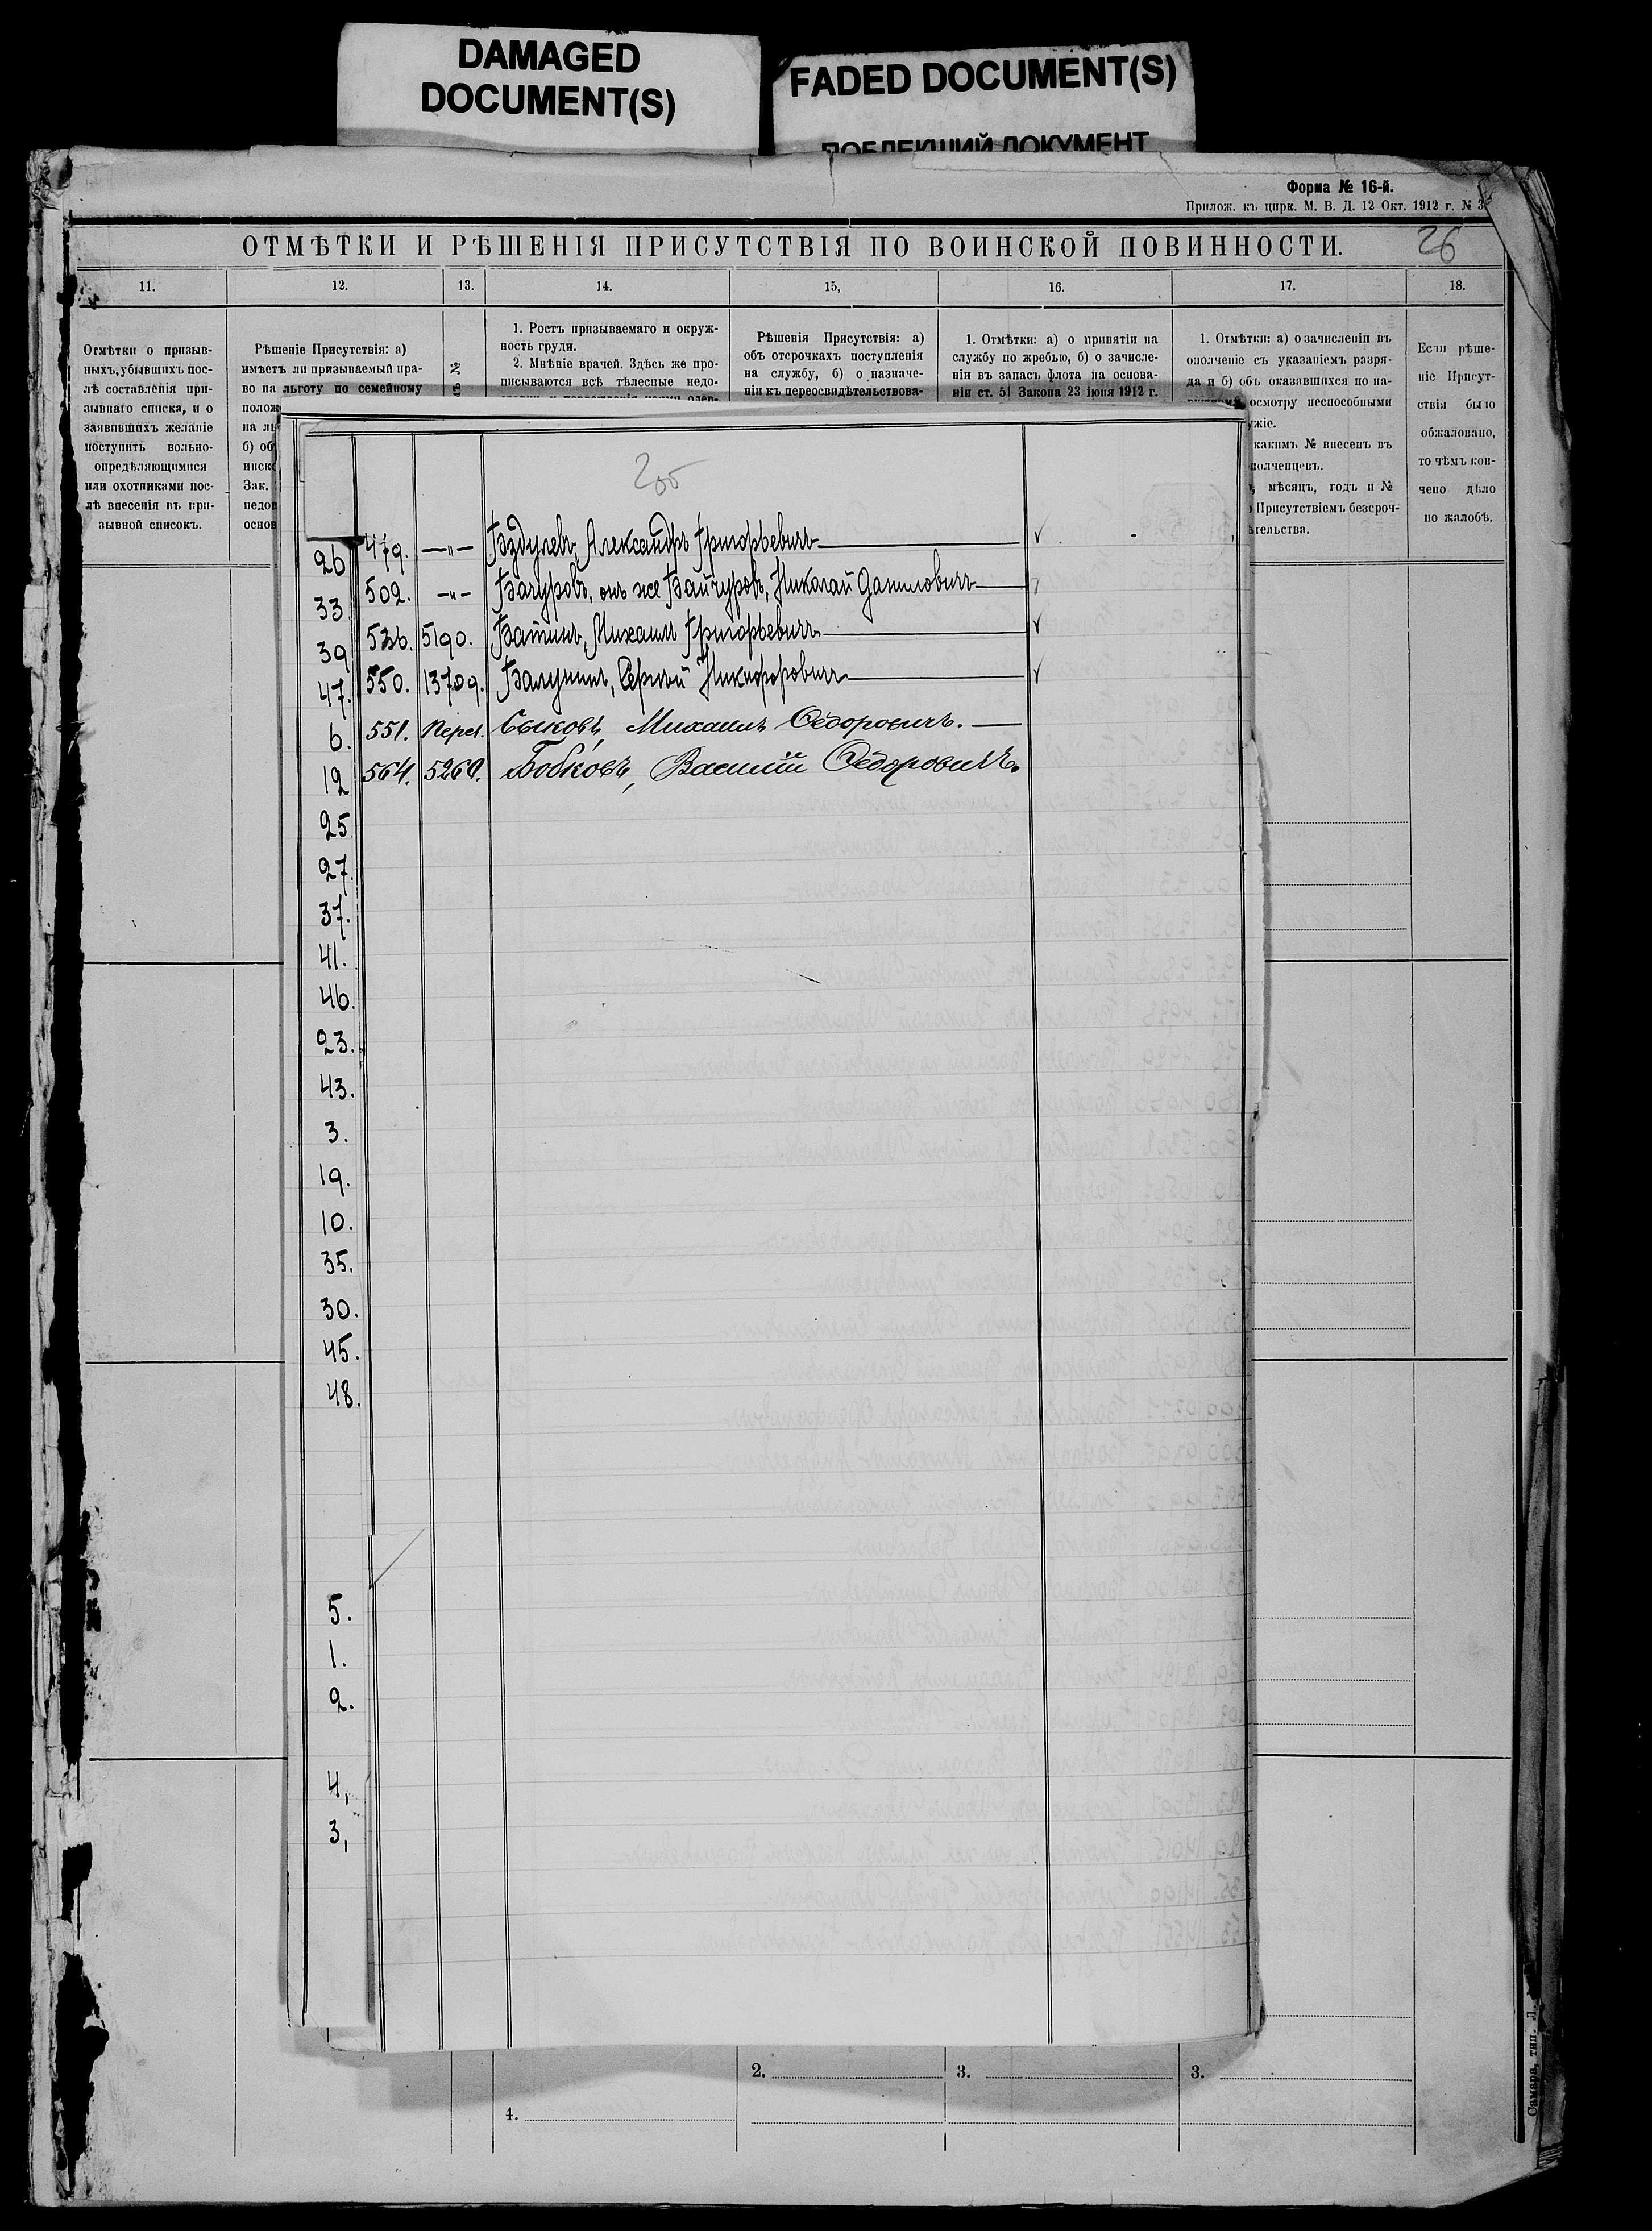 DAMAGED
DOCUMENT(S)
FADED DOCUMENT(S)
ПОБЛЕКШИЙ ДОКУМЕНТ
Форма № 16-й.
Прилож. къ цирк. М. В. Д. 12 Окт. 1912 г. № 3
ОТМѢТКИ И РѢШЕНІЯ ПРИСУТСТВІЯ ПО ВОИНСКОЙ ПОВИННОСТИ.
26
11. 12. 13. 14. 15, 16. 17. 18.
Отмѣтки о призыв-
ныхъ, убывшихъ пос-
лѣ составленія при-
зывнаго списка, и о
заявившихъ желаніе
поступить вольно-
опредѣляющимися
или охотниками пос-
лѣ внесенія въ при-
зывной списокъ.
Рѣшеніе Присутствія: а)
имѣетъ ли призываемый пра-
во на льготу по семейному
полож
на ль
б) об
инск
Зак.
недоп
основ
№
1. Ростъ призываемаго и окруж-
ность груди.
2. Мнѣніе врачей. Здѣсь же про-
писываются всѣ тѣлесные недо-
Рѣшенія Присутствія: а)
объ отсрочкахъ поступленія
на службу, б) о назначе-
ніи къ переосвидѣтельствова-
1. Отмѣтки: а) о принятіи на
службу по жребью, б) о зачисле-
ніи въ запасъ флота на основа-
ніи ст. 51 Закона 23 іюня 1912 г.
1. Отмѣтки: а) о зачисленіи въ
ополченіе съ указаніемъ разря-
да и б) объ оказавшихся по на-
осмотру неспособными
ужіе.
какимъ № внесенъ въ
полченцевъ.
мѣсяцъ, годъ и №
Присутствіемъ безсроч-
ѣтельства.
Если рѣше-
ніе Присут-
ствія было
обжаловано,
то чѣмъ кон-
чено дѣло
по жалобѣ.
26 479. —"— Бздулевъ, Александръ Григорьевичъ
33. 502. —"— Бачуровъ, онъ же Байчуровъ, Николай Даниловичъ
39 536. 5190. Батинъ, Михаилъ Григорьевичъ
47. 550. 13709. Балунинъ, Сергѣй Никифоровичъ
6. 551. Перег. Быковъ, Михаилъ Ѳедоровичъ.
12 564. 5260. Бобковъ, Василій Ѳедоровичъ.
25
27.
37.
41.
46.
23.
43.
3.
19.
10.
35.
30.
45.
48.
5.
1.
2.
4,
3,
2. 3. 3.
4.
Самара, тип. Л.